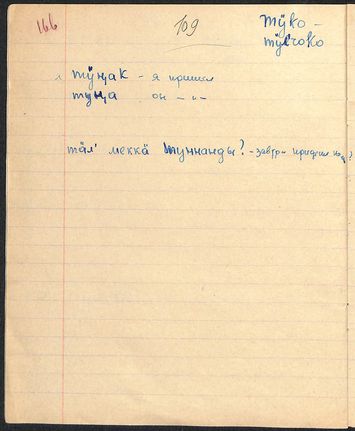 166
109
тӱко -
тӱлчоко
тӱӊак - я пришел
туӊа он -"-
тӓл' меккӓ туннанды? - завтра придешь